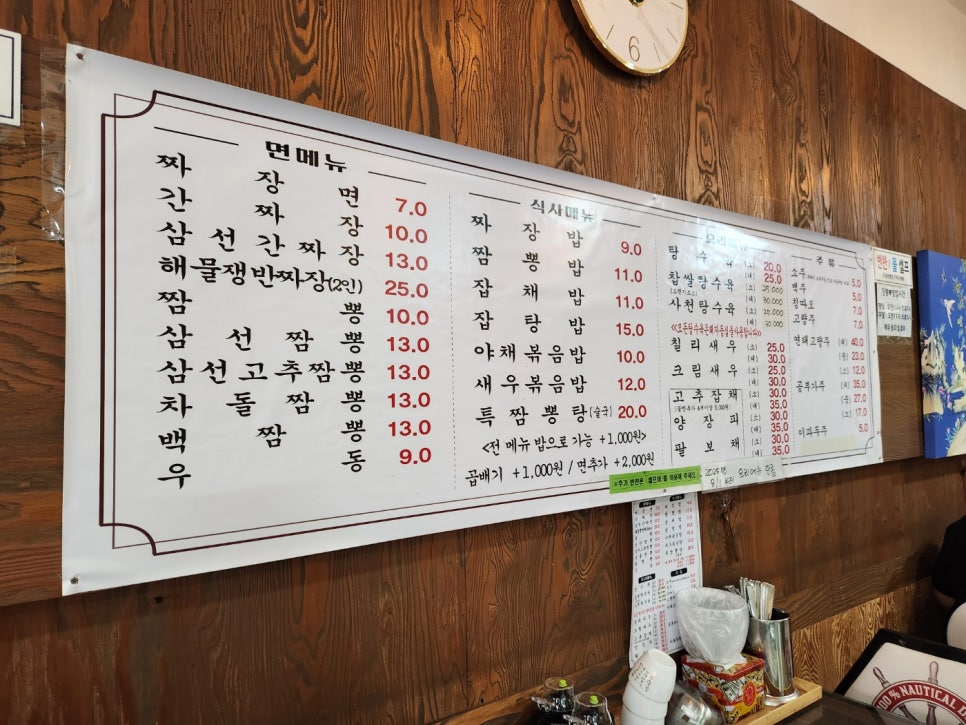 면메뉴
짜장면 7.0
간짜장 10.0
삼선간짜장 13.0
해물쟁반짜장(2인) 25.0
짬뽕 10.0
삼선짬뽕 13.0
삼선고추짬뽕 13.0
차돌짬뽕 13.0
백짬뽕 13.0
우동 9.0
식사메뉴
짜장밥 9.0
짬뽕밥 11.0
잡채밥 11.0
잡탕밥 15.0
야채볶음밥 10.0
새우볶음밥 12.0
특짬뽕탕(술국) 20.0
<전 메뉴 밥으로 가능 +1,000원>
곱배기 +1,000원 / 면추가 +2,000원
탕수육 (소) 20.0
(대) 25.0
찹쌀탕수육 (소) 25,000
(대) 30,000
사천탕수육 (소)
(대) 30,000
칠리새우 (소) 25.0
(대) 30.0
크림새우 (소) 25.0
(대) 30.0
고추잡채 (소) 30.0
(대) 35.0
양장피 (소) 30.0
(대) 35.0
팔보채 (소) 30.0
(대) 35.0
주류
소주 5.0
맥주 5.0
칭따오 7.0
고량주 7.0
연태고량주 (대) 40.0
(중) 23.0
(소) 12.0
공부가주 (대) 35.0
(중) 27.0
(소) 17.0
이과두주 5.0
반찬 / 물 셀프
6
100% NAUTICAL